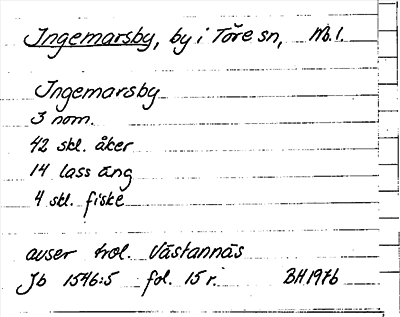 Ingemarsby, by i Töre sn, Nb.
Ingemarsby
3 nom.
42 skl. åker
14 lass äng
4 skl. fiske
avser trol. Västannäs
Jb 1546:5 fol. 15 r. BH 1976